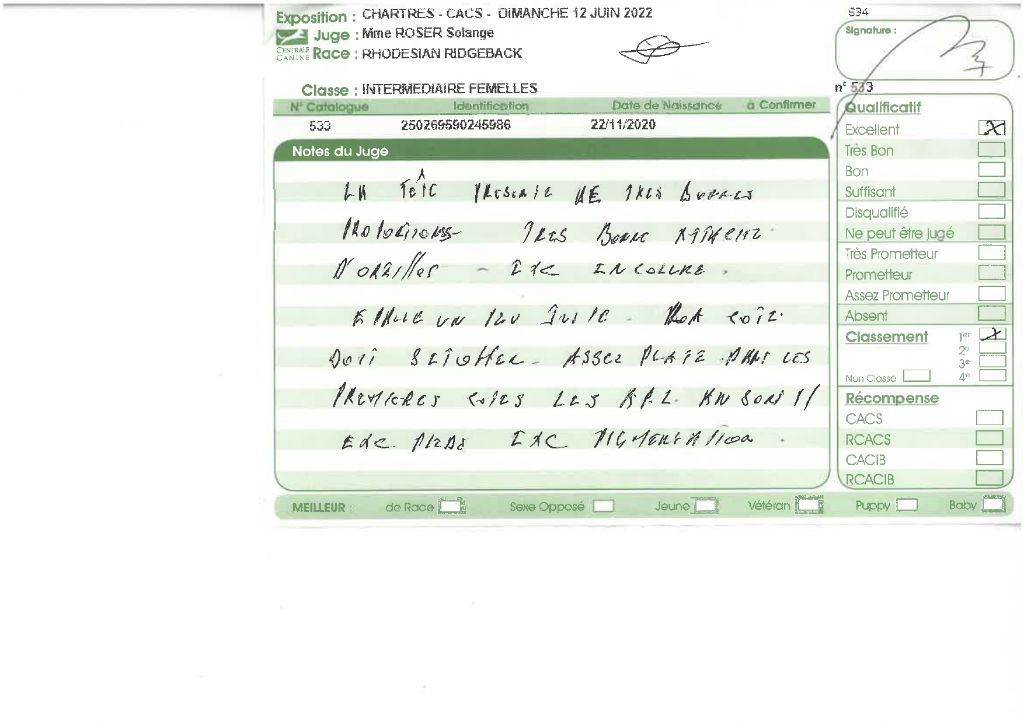 Exposition : CHARTRES - CACS - DIMANCHE 12 JUIN 2022
Juge : Mme ROSER Solange
CENTRALE CANINE
Race : RHODESIAN RIDGEBACK
Classe : INTERMEDIAIRE FEMELLES
N° Catalogue Identification Date de Naissance à Confirmer
533 250269590245986 22/11/2020
Notes du Juge
LA TÊTE PRESENTE DE TRES BONNES
PROPORTIONS TRES BONNE ATTACHE
D'OREILLES - EXC ENCOLURE.
EPAULE UN PEU JUSTE - BON
DOIT S'ETOFFER - ASSEZ PLATE DANS LES
PREMIERES COTES LES AP.L. //
EXC. PIEDS EXC PIGMENTATION.
MEILLEUR : de Race Sexe Opposé Jeune Vétéran Puppy Baby
634
Signature :
n° 533
Qualificatif
Excellent X
Très Bon
Bon
Suffisant
Disqualifié
Ne peut être jugé
Très Prometteur
Prometteur
Assez Prometteur
Absent
Classement 1er X
2e
3e
Non Classé 4e
Récompense
CACS
RCACS
CACIB
RCACIB